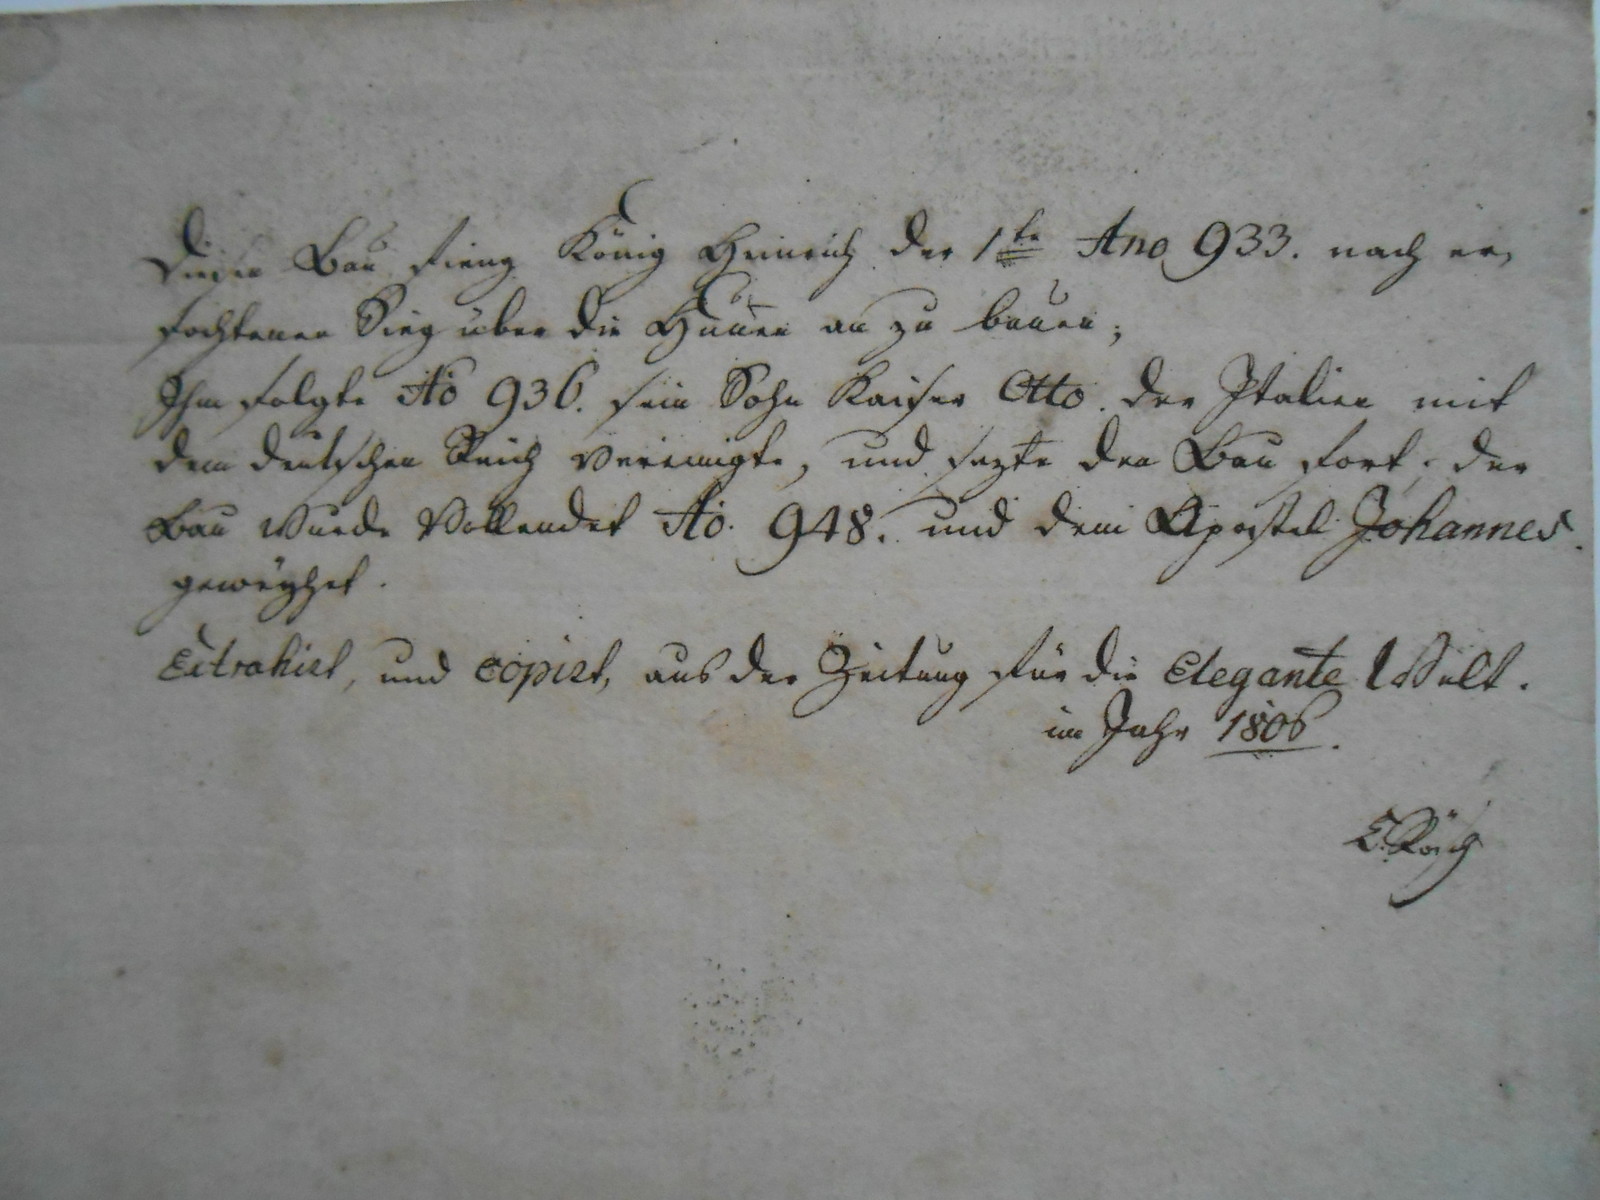 Diesen Bau fieng König Heinrich der 1te Ano 933. nach er,
fochtenen Sieg über die Hunen an zu bauen;
Ihm folgte Aō 936. sein Sohn Kaiser Otto. der Italien mit
dem deutschen Reich vereinigte, und sezte den Bau fort; der
Bau wurde Vollendet Aō. 948. und dem Apostel Johannes.
geweÿhet.
Extrahirt, und copirt, aus der Zeitung für die Elegante Welt.
im Jahr 1806.